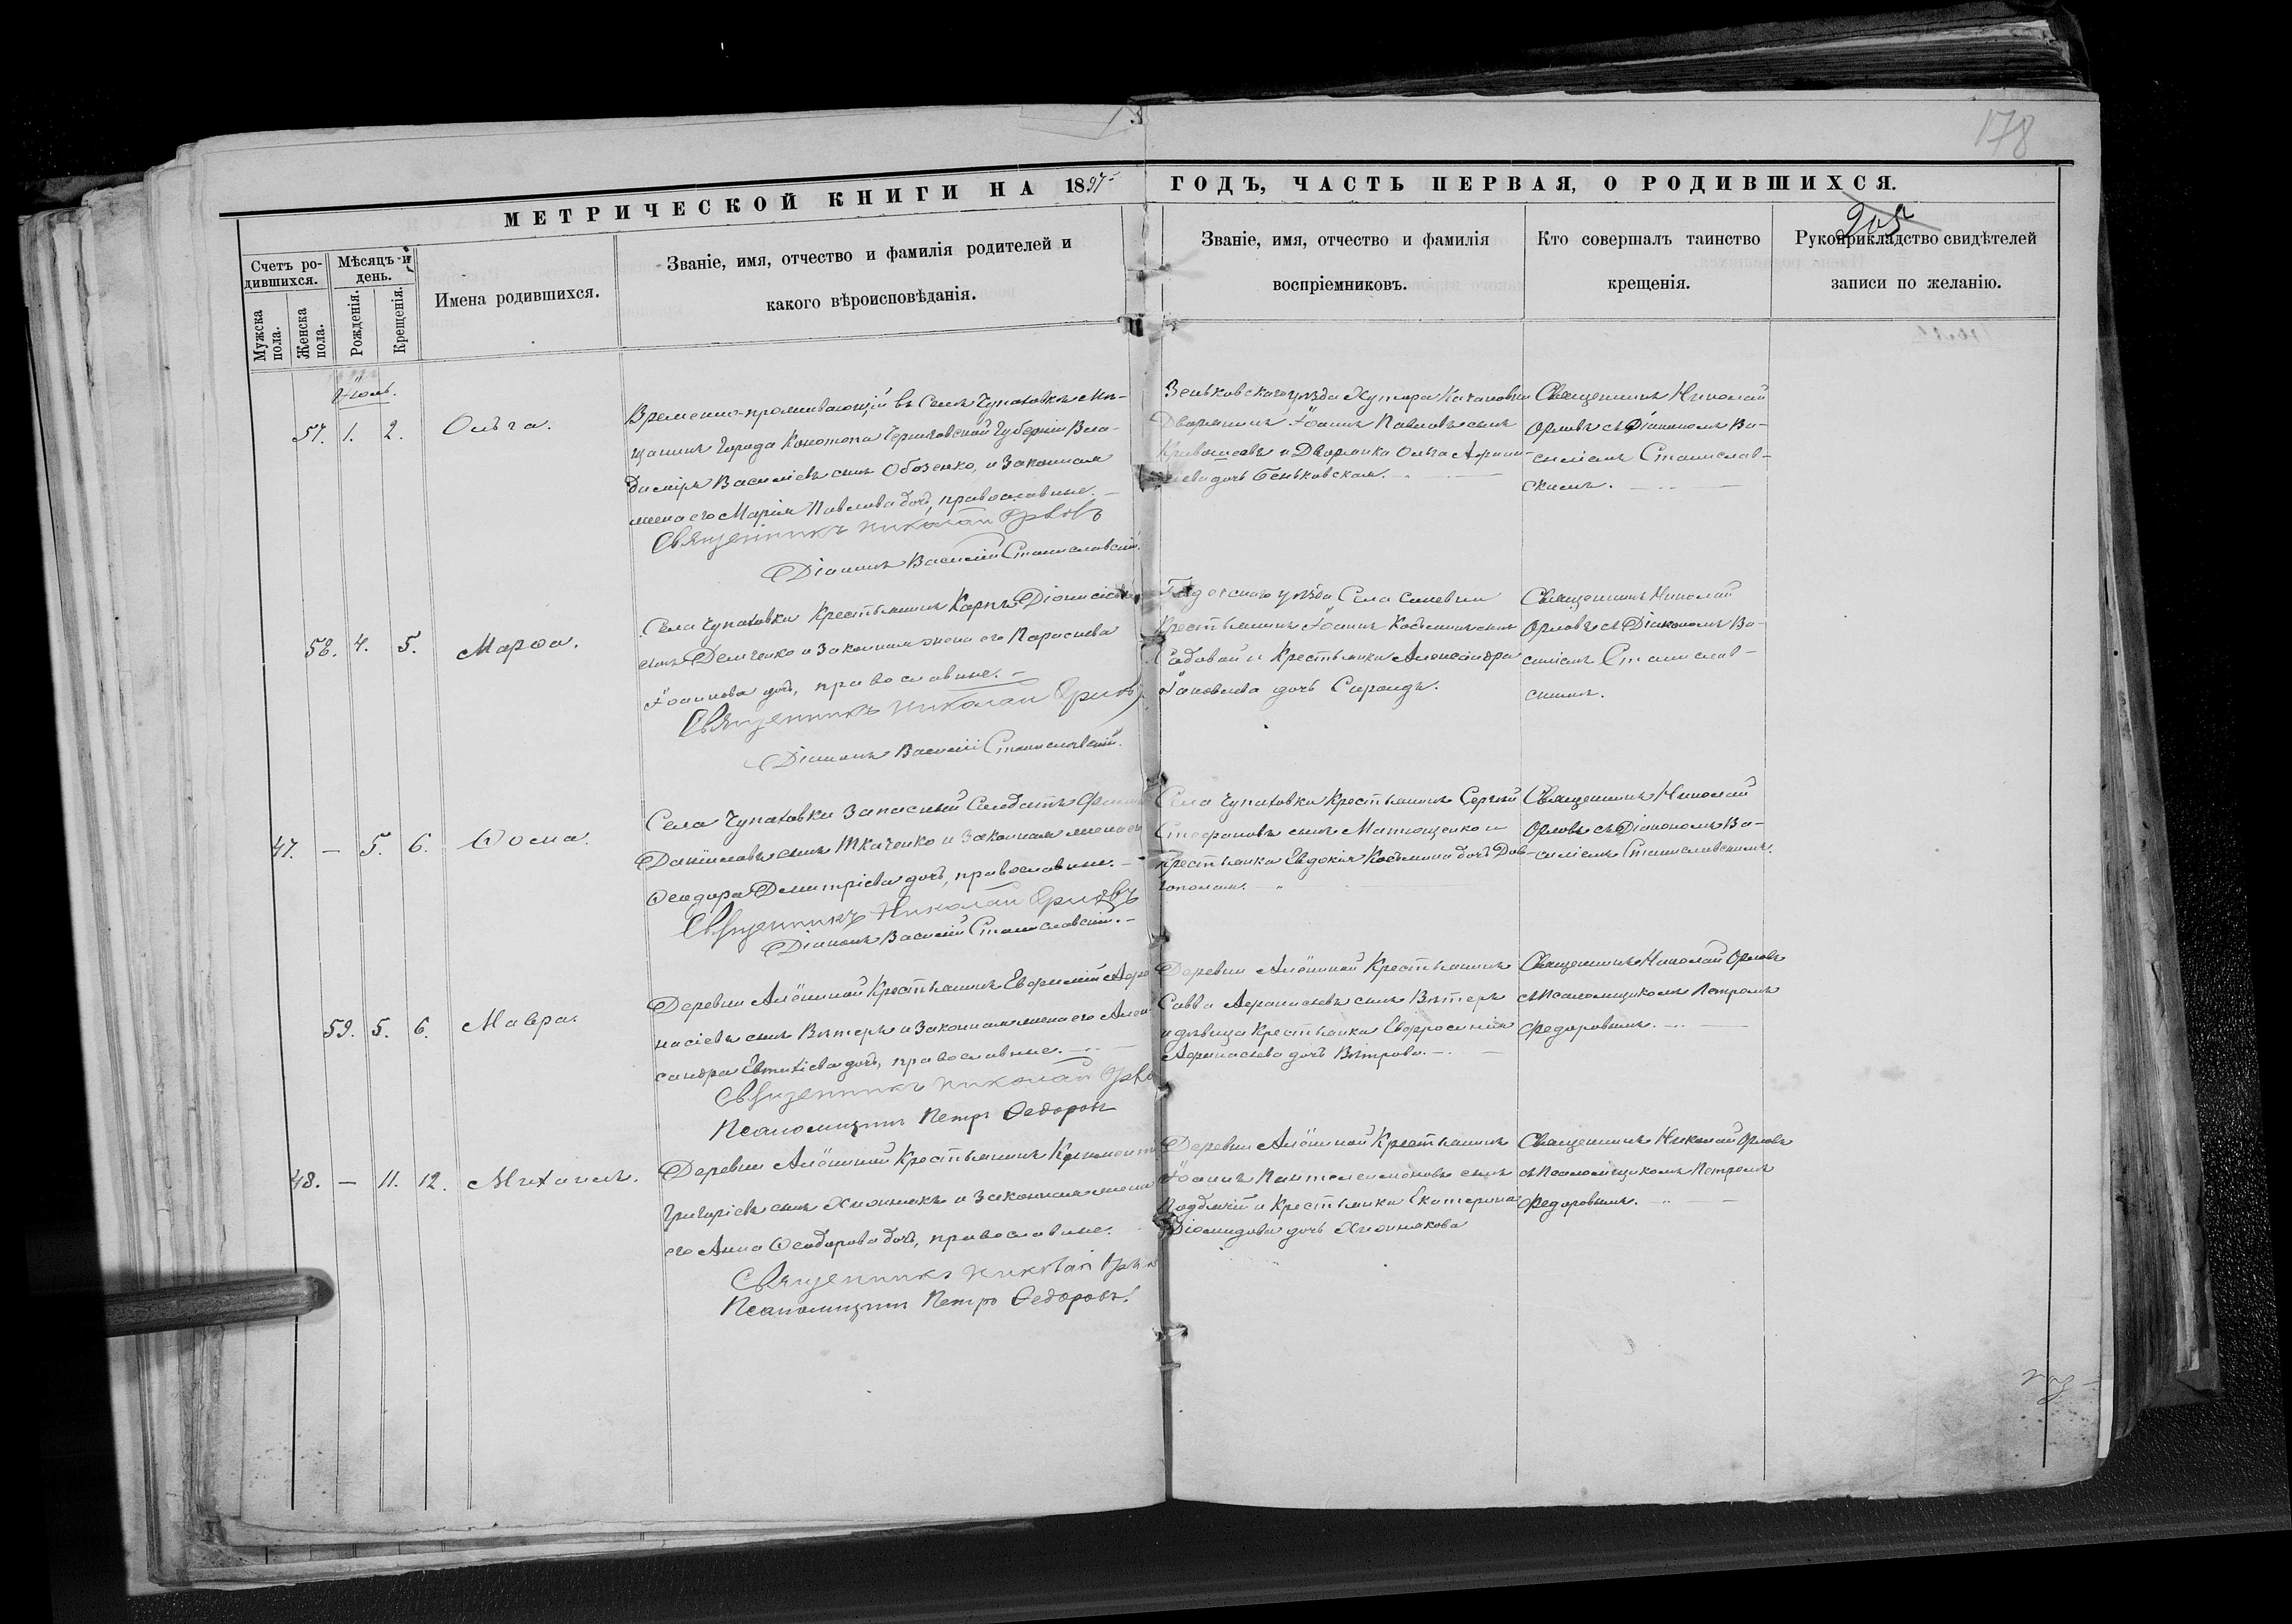 178
МЕТРИЧЕСКОЙ КНИГИ НА 1897 ГОДЪ, ЧАСТЬ ПЕРВАЯ, О РОДИВШИХСЯ.
205
Счетъ ро-
дившихся.
Мужска пола.
Женска пола.
Мѣсяцъ и
день.
Рожденія.
Крещенія.
Имена родившихся.
Званіе, имя, отчество и фамилія родителей и
какого вѣроисповѣданія.
Званіе, имя, отчество и фамилія
воспріемниковъ.
Кто совершалъ таинство
крещенія.
Рукоприкладство свидѣтелей
записи по желанію.
Іюль.
57. 1. 2.
Ольга.
Временно-проживающій въ Селѣ Чупаховкѣ Мѣ-
щанинъ Города Конотопа Черниговской Губерніи Вла-
диміръ Василіевъ сынъ Обозенко, и Законная
жена его Марія Павлова дочь, православные.
Священникъ Николай Орловъ
Діаконъ Василій Станиславскій.
Зеньковскаго уѣзда Хутора Качановки
Дворянинъ Іоаннъ Павловъ сынъ
и Дворянка Ольга
дочь Беньковская.
Священникъ Николай
Орловъ съ Діакономъ Ва-
силіемъ Станислав-
скимъ.
58. 4. 5.
Марѳа.
Села Чупаховки Крестьянинъ Карпъ Діонисіевъ
сынъ Демченко и Законная жена его Параскева
Іоаннова дочь, православные.
Священникъ Николай Орловъ
Діаконъ Василій Станиславскій.
Гадячскаго уѣзда Села
Крестьянинъ Іоаннъ Косьминъ сынъ
Садовой и Крестьянка Александра
Іаковлева дочь
Священникъ Николай
Орловъ съ Діакономъ Ва-
силіемъ Станислав-
скимъ.
47. — 5. 6.
Ѳома.
Села Чупаховки Запасный Солдатъ
Даніиловъ сынъ Ткаченко и Законная жена его
Ѳеодора Димитріева дочь, православные.
Священникъ Николай Орловъ
Діаконъ Василій Станиславскій.
Села Чупаховки Крестьянинъ Сергій
Стефановъ сынъ Матющенко и
крестьянка Евдокія Косьмина дочь Дов-
гополая.
Священникъ Николай
Орловъ съ Діакономъ Ва-
силіемъ Станиславскимъ.
59. 5. 6.
Мавра.
Деревни Алёшной Крестьянинъ Евфимій Афа-
насіевъ сынъ Вѣтеръ и Законная жена его Алек-
сандра Евтихіева дочь, православные.
Священникъ Николай Орловъ
Псаломщикъ Петръ Ѳедоровъ
Деревни Алёшной Крестьянинъ
Савва Афанасьевъ сынъ Вѣтеръ
и дѣвица Крестьянка Евфросинія
Афанасьева дочь Вѣтрова.
Священникъ Николай Орловъ
съ Псаломщикомъ Петромъ
Федоровымъ.
48. — 11. 12.
Михаилъ.
Деревни Алёшной Крестьянинъ
Григоріевъ сынъ Хижнякъ и Законная жена
его Анна Ѳеодорова дочь, православные.
Священникъ Николай
Псаломщикъ Петръ Ѳедоровъ.
Деревни Алёшной Крестьянинъ
Іоаннъ Пантелеимоновъ сынъ
и Крестьянка Екатерина
Діомидова дочь Хижнякова
Священникъ Николай Орловъ
съ Псаломщикомъ Петромъ
Федоровымъ.